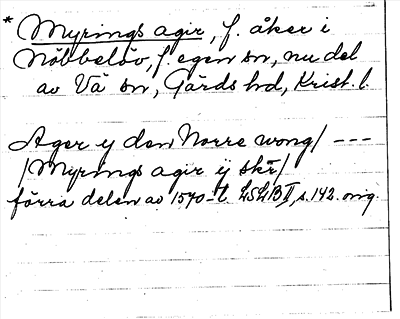 * Myrings agir, f. åker i
Nöbbelöv, f. egen sn, nu del
av Vä sn, Gärds hd, Krist. l.
Ager y den Norre wong/ ---
/Myrings agir ÿ skr/
förra delen av 1570-t. LSLB II, s. 142. orig.